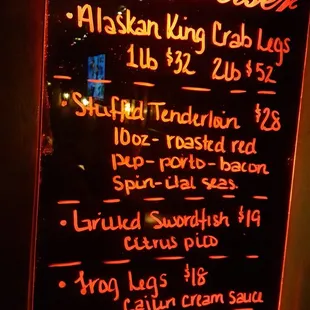 • Alaskan King Crab Legs
1lb $32 2lb $52
• Stuffed Tenderloin $28
10oz - roasted red
pep - porto - bacon
Spin - ital seas.
• Grilled Swordfish $19
citrus pico
• Frog Legs $18
Cajun Cream Sauce